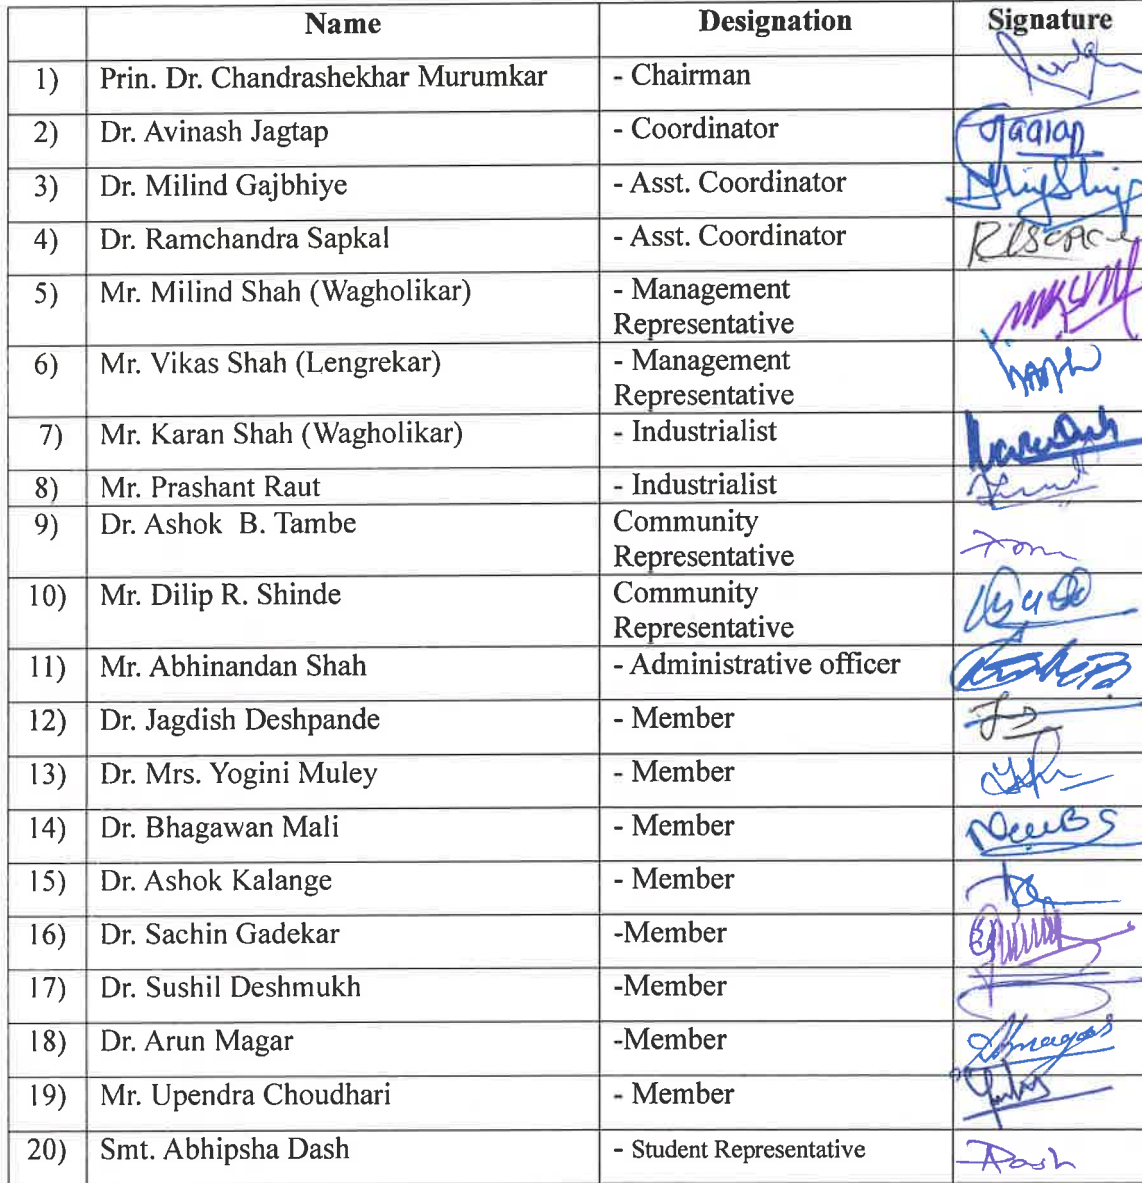 Name Designation Signature
1) Prin. Dr. Chandrashekhar Murumkar - Chairman
2) Dr. Avinash Jagtap - Coordinator Jagtap
3) Dr. Milind Gajbhiye - Asst. Coordinator
4) Dr. Ramchandra Sapkal - Asst. Coordinator
5) Mr. Milind Shah (Wagholikar) - Management
Representative
6) Mr. Vikas Shah (Lengrekar) - Management
Representative
7) Mr. Karan Shah (Wagholikar) - Industrialist
8) Mr. Prashant Raut - Industrialist
9) Dr. Ashok B. Tambe Community
Representative
10) Mr. Dilip R. Shinde Community
Representative
11) Mr. Abhinandan Shah - Administrative officer
12) Dr. Jagdish Deshpande - Member
13) Dr. Mrs. Yogini Muley - Member
14) Dr. Bhagawan Mali - Member
15) Dr. Ashok Kalange - Member
16) Dr. Sachin Gadekar -Member
17) Dr. Sushil Deshmukh -Member
18) Dr. Arun Magar -Member
19) Mr. Upendra Choudhari - Member
20) Smt. Abhipsha Dash - Student Representative Dash